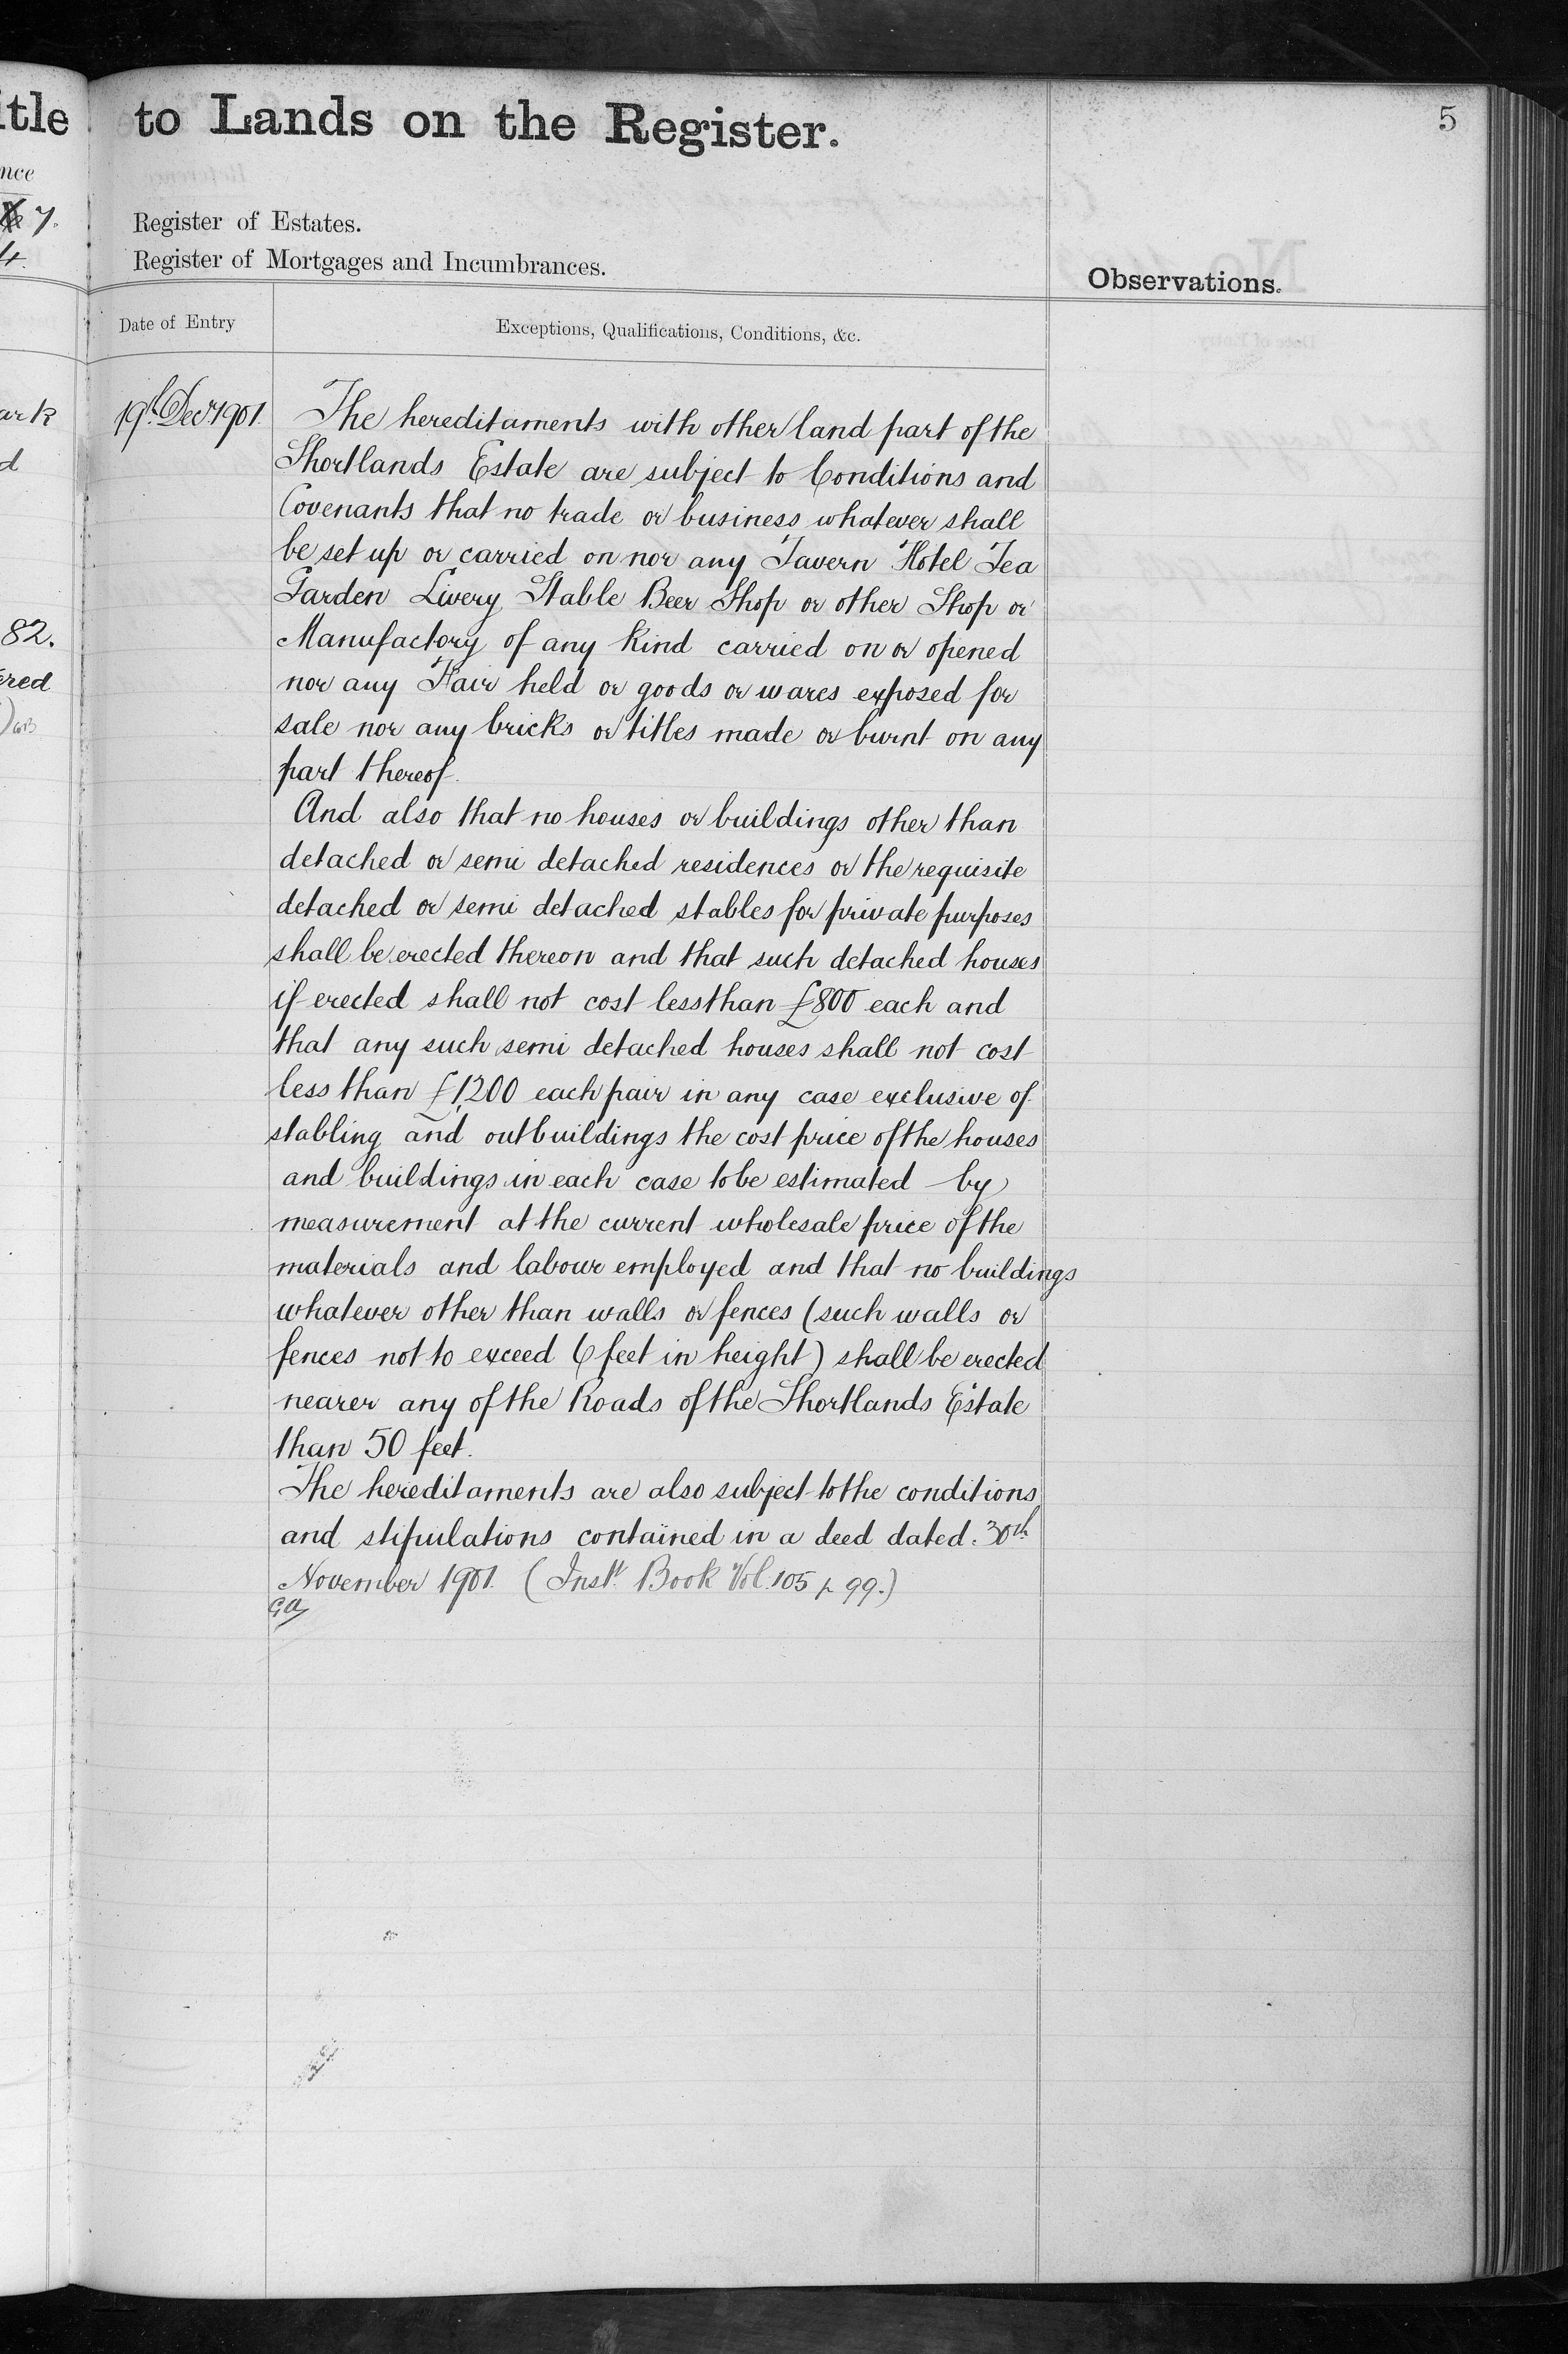 itle to Lands on the Register.
5
nce
7.
4.
Register of Estates.
Register of Mortgages and Incumbrances.
Observations.
Date of Entry
Exceptions, Qualifications, Conditions, &c.
ark
d
82.
ered
19th Decr 1901.
The hereditaments with other land part of the
Shortlands Estate are subject to Conditions and
Covenants that no trade or business whatever shall
be set up or carried on nor any Tavern Hotel Tea
Garden Livery Stable Beer Shop or other Shop or
Manufactory of any kind carried on or opened
nor any Fair held or goods or wares exposed for
sale nor any bricks or titles made or burnt on any
part thereof.
And also that no houses or buildings other than
detached or semi detached residences or the requisite
detached or semi detached stables for private purposes
shall be erected thereon and that such detached houses
if erected shall not cost less than £800 each and
that any such semi detached houses shall not cost
less than £1,200 each pair in any case exclusive of
stabling and outbuildings the cost price of the houses
and buildings in each case to be estimated by
measurement at the current wholesale price of the
materials and labour employed and that no buildings
whatever other than walls or fences (such walls or
fences not to exceed 6 feet in height) shall be erected
nearer any of the Roads of the Shortlands Estate
than 50 feet.
The hereditaments are also subject to the conditions
and stipulations contained in a deed dated 30th
November 1901. (Inst. Book Vol. 105 p 99.)
GA